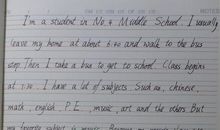 I'm a student in No.4 Middle School. I usually
leave my home at about 6:40 and walk to the bus
stop. Then I take a bus to get to school. Class begins
at 7:30. I have a lot of subjects. Such as, chinese,
math, english, P.E, music, art and the others. But
my favorite subject is music. Because